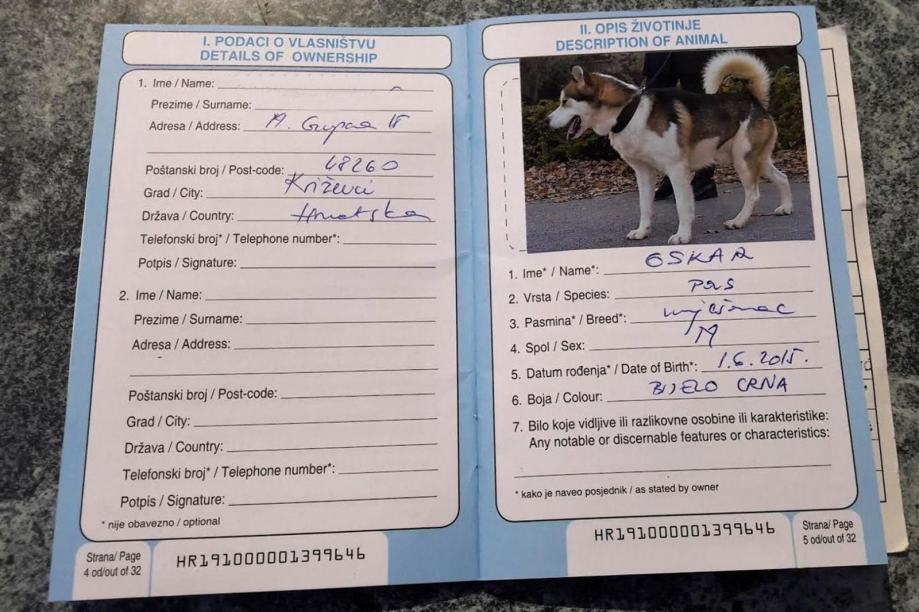 I. PODACI O VLASNIŠTVU
DETAILS OF OWNERSHIP
1. Ime / Name:
Prezime / Surname:
Adresa / Address: M. Gupca
Poštanski broj / Post-code: 48260
Grad / City: Križevci
Država / Country: Hrvatska
Telefonski broj* / Telephone number*:
Potpis / Signature:
2. Ime / Name:
Prezime / Surname:
Adresa / Address:
Poštanski broj / Post-code:
Grad / City:
Država / Country:
Telefonski broj* / Telephone number*:
Potpis / Signature:
* nije obavezno / optional
Strana/ Page
4 od/out of 32
HR191000001399646
II. OPIS ŽIVOTINJE
DESCRIPTION OF ANIMAL
1. Ime* / Name*: OSKAR
2. Vrsta / Species: PAS
3. Pasmina* / Breed*: mješanac
4. Spol / Sex: M
5. Datum rođenja* / Date of Birth*: 1.6.2015.
6. Boja / Colour: BIJELO CRNA
7. Bilo koje vidljive ili razlikovne osobine ili karakteristike:
Any notable or discernable features or characteristics:
* kako je naveo posjednik / as stated by owner
HR191000001399646
Strana/ Page
5 od/out of 32